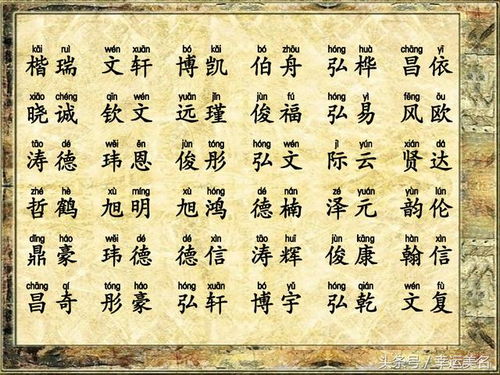 kǎi ruì wén xuān bó kǎi bó zhōu hóng huà chāng yī
楷瑞 文轩 博凯 伯舟 弘桦 昌依
xiǎo chéng qīn wén yuǎn jǐn jùn fú hóng yì fēng ōu
晓诚 钦文 远瑾 俊福 弘易 风欧
tāo dé wěi ēn jùn tóng hóng wén jì yún xián dá
涛德 玮恩 俊彤 弘文 际云 贤达
zhé hè xù míng xù hóng dé nán zé yuán yùn lún
哲鹤 旭明 旭鸿 德楠 泽元 韵伦
dǐng háo wěi dé dé xìn tāo huī jùn kāng hàn xìn
鼎豪 玮德 德信 涛辉 俊康 翰信
chāng qí tóng háo hóng xuān bó yǔ hóng qián wén fù
昌奇 彤豪 弘轩 博宇 弘乾 文复
头条号/幸运美名